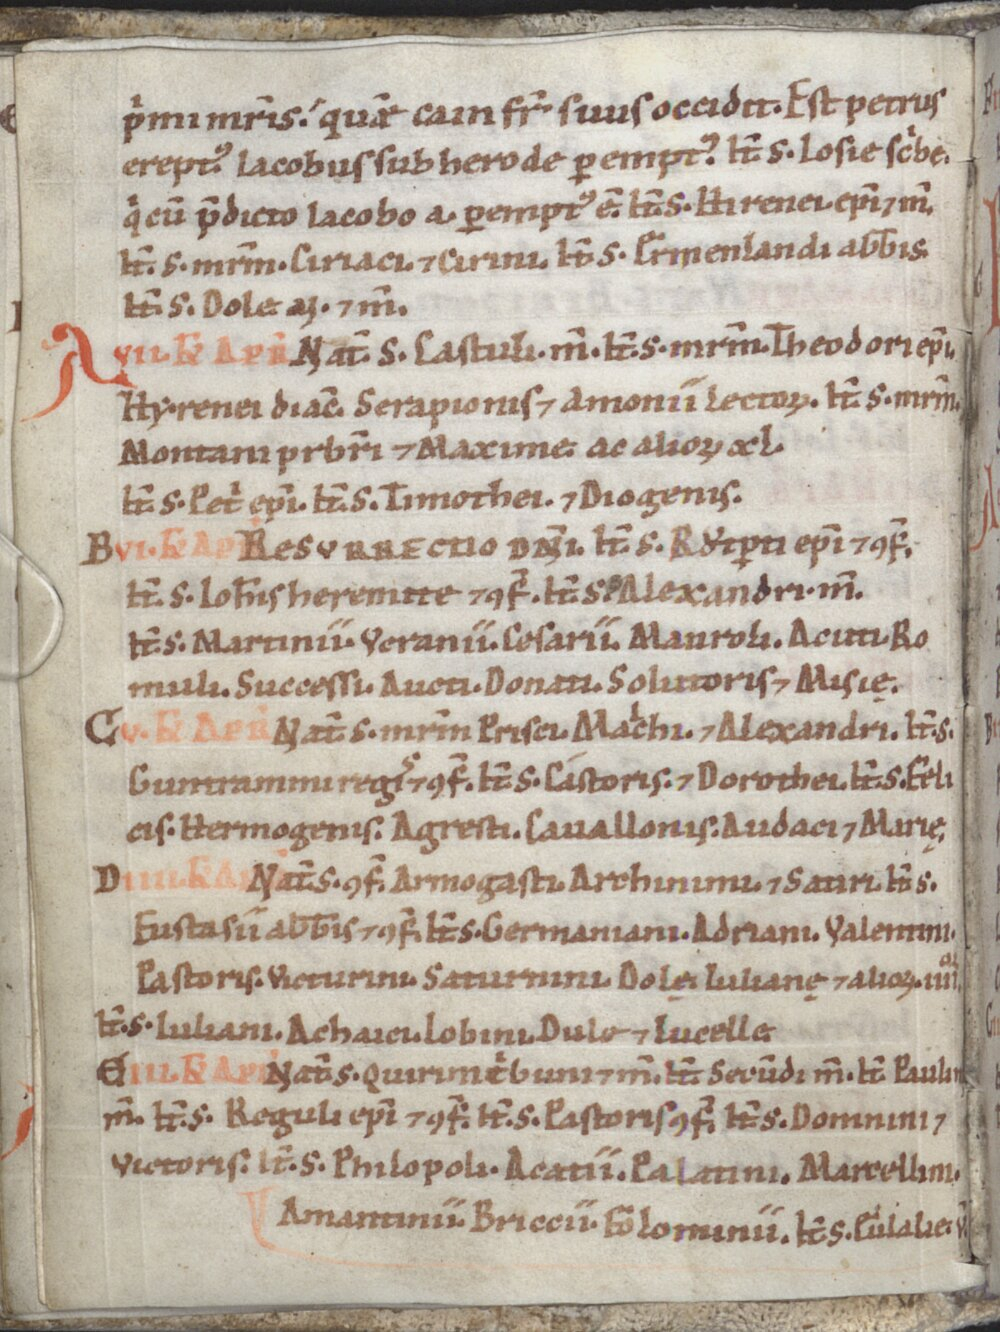 p̓mi mr̄is. quā cain fr̄ suus occidit. Est petrus
erept᷒ Iacobus sub herode ꝑempt᷒. It̄ s. Iosie sc̓be.
q̓ cū p̄dicto Iacobo a. ꝑempt᷒ ē. It̄. S. Hirenei. epi̅ ⁊ m̄.
It̄. s. mr̄m. Ciriaci. ⁊ Cirini. It̄ s. Ermenlandi abb̄is.
It̄ s. Dole ⁊ m̄.
A vii. kł Apr̄ Nat̄. S. Castuli. m̄. It̄. s. mr̄m. Theodori epi̅.
Hyrenei diac̄. Serapionis ⁊ Amonii Lectoꝝ. It̄ s. mr̄m.
Montani prb̄ri ⁊ Maxime. ac alioꝝ xl.
It̄ s. Pet̓ epi̅. It̄. S. Timothei. ⁊ Diogenis.
B vi. kł Apr̄ Resurrectio dn̄i. It̄. s. Rutꝑti epi̅ ⁊ ꝯf̄.
It̄. s. Ioh̄is heremite ⁊ ꝯf̄. It̄. S. Alexandri. m̄.
It̄ s. Martinii. Veranii. Cesarii. Mauroli. Acuti. Ro
muli. Successi. Aucti. Donati. Solutoris ⁊ Misię.
C v. kł Apr̄ Nat̄ s. mr̄m Prisci. Malchi. ⁊ Alexandri. It̄. s.
Guntrammi reg᷒ ⁊ ꝯf̄. It̄. s. Castoris. ⁊ Dorothei. It̄. s. Feli
cis. Hermogenis. Agresti. Cauallonis. Audaci ⁊ Marię.
D iiii. kł Apr̄ Nat̄. s. ꝯf̄. Armogasti. Archinimi. ⁊ Satiri. It̄ s.
Eustasii abb̄is ⁊ ꝯf̄. It̄ s. Germaniani. Adriani. Valentini.
Pastoris. Victurini. Saturnini. Dolę. Iulianę ⁊ alioꝝ. iiii.
It̄. s. Iuliani. Achaici. Iobini. Dule ⁊ Lucelle
E iii. kł Apr̄ Nat̄ s. Quirini t̓buni ⁊ m̄. It̄. Secūdi m̄. It̄ Paulini
m̄. It̄. s. Reguli epi̅ ⁊ ꝯf̄. It̄. s. Pastoris ꝯf̄. It̄. s. Domnini ⁊
Victoris. It̄. s. Philopoli. Acatii. Palatini. Marcellini.
Amantinii. Briccii. Solominii. It̄. s. Eulalie.